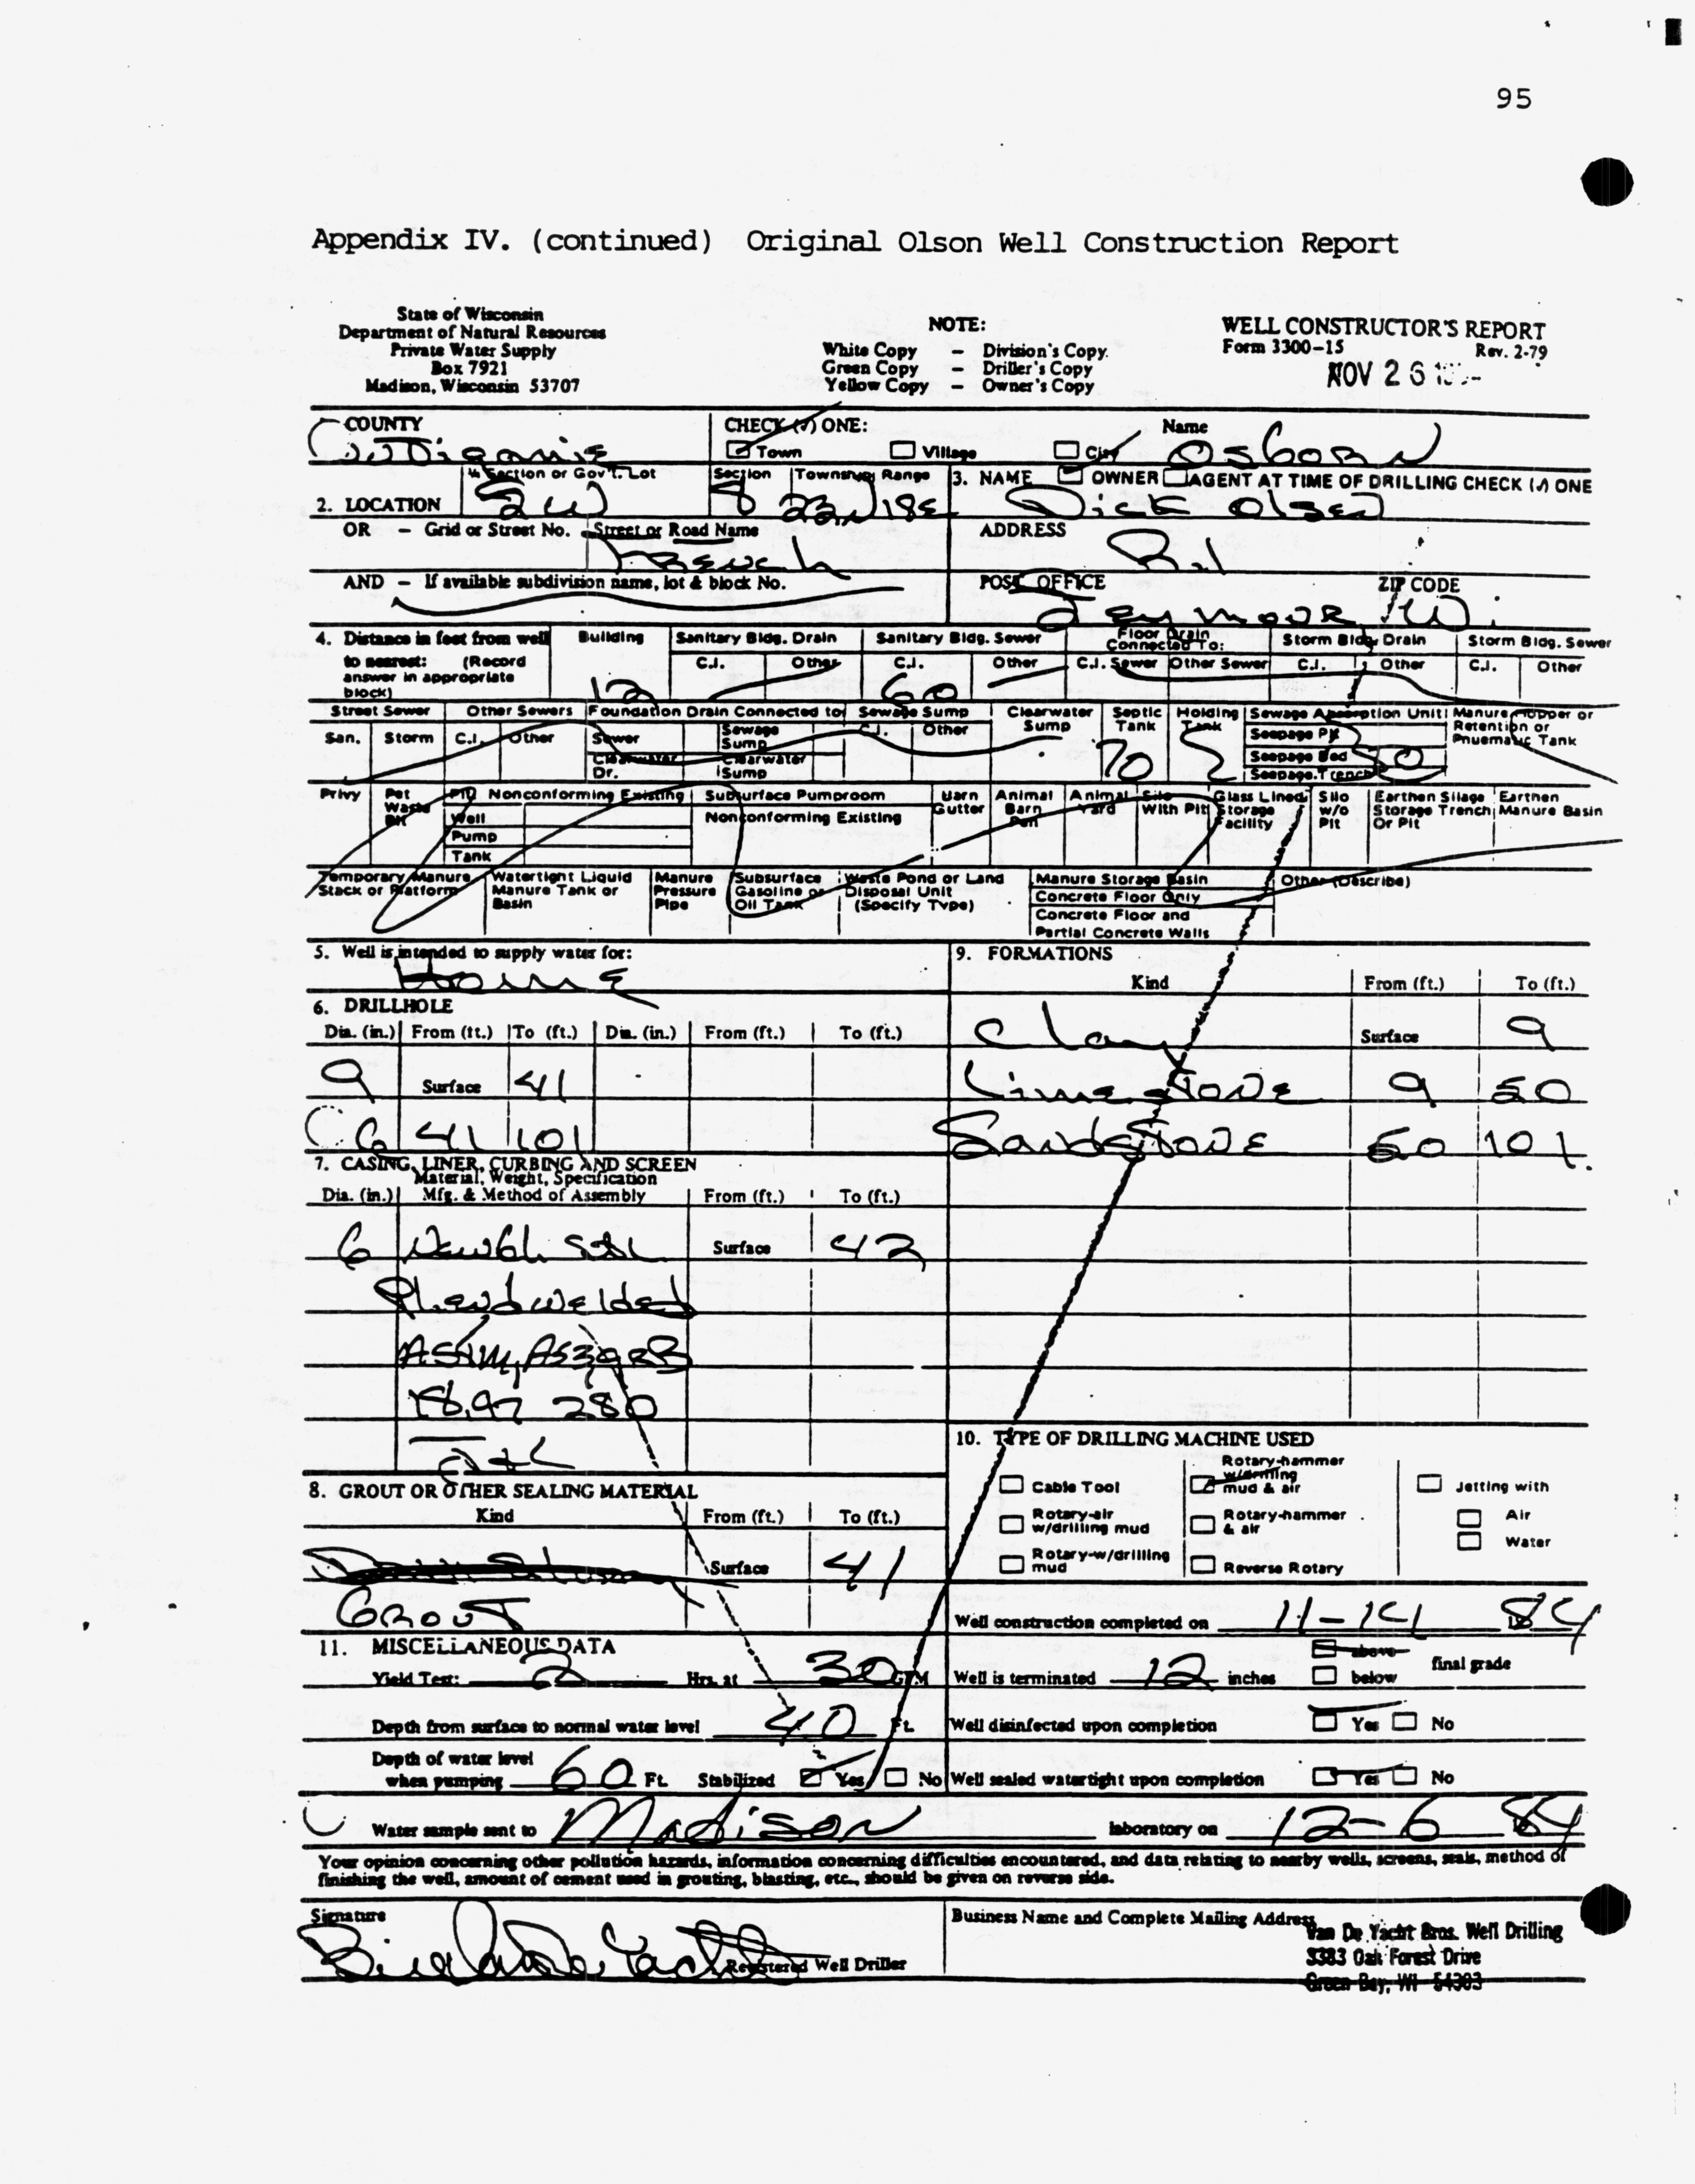 95
Appendix IV. (continued) Original Olson Well Construction Report
State of Wisconsin
Department of Natural Resources
Private Water Supply
Box 7921
Madison, Wisconsin 53707
NOTE:
White Copy – Division's Copy.
Green Copy – Driller's Copy
Yellow Copy – Owner's Copy
WELL CONSTRUCTOR'S REPORT
Form 3300-15 Rev. 2-79
NOV 26
COUNTY CHECK (✓) ONE: Name
Outigamie Town Village City Osborn
¼ Section or Gov't. Lot Section Township Range 3. NAME OWNER AGENT AT TIME OF DRILLING CHECK (✓) ONE
2. LOCATION SW 8 23N 18E Dick Olsen
OR – Grid or Street No. Street or Road Name ADDRESS
French R1
AND – If available subdivision name, lot & block No. POST OFFICE ZIP CODE
Seymour Wi.
4. Distance in feet from well Building Sanitary Bldg. Drain Sanitary Bldg. Sewer Floor Drain Connected To: Storm Bldg. Drain Storm Bldg. Sewer
to nearest: (Record C.I. Other C.I. Other C.I. Sewer Other Sewer C.I. Other C.I. Other
answer in appropriate
block) 12 60
Street Sewer Other Sewers Foundation Drain Connected to Sewage Sump Clearwater Sump Septic Tank Holding Tank Sewage Absorption Unit Manure Hopper or Retention or Pnuematic Tank
San. Storm C.I. Other Sewer Sewage Sump C.I. Other Seepage Pit
Clearwater Dr. Clearwater Sump 70 Seepage Bed 50
Seepage Trench
Privy Pet Waste Pit Pit Nonconforming Existing Subsurface Pumproom Barn Gutter Animal Barn Pen Animal Yard Silo With Pit Glass Lined Storage Facility Silo w/o Pit Earthen Silage Storage Trench Or Pit Earthen Manure Basin
Well Nonconforming Existing
Pump
Tank
Temporary Manure Stack or Platform Watertight Liquid Manure Tank or Basin Manure Pressure Pipe Subsurface Gasoline or Oil Tank Waste Pond or Land Disposal Unit (Specify Type) Manure Storage Basin Other (Describe)
Concrete Floor Only
Concrete Floor and
Partial Concrete Walls
5. Well is intended to supply water for:
Home
6. DRILLHOLE
Dia. (in.) From (ft.) To (ft.) Dia. (in.) From (ft.) To (ft.)
9 Surface 41
6 41 101
7. CASING, LINER, CURBING AND SCREEN
Material, Weight, Specification
Dia. (in.) Mfg. & Method of Assembly From (ft.) To (ft.)
6 Surface 42
welded
18.97 280
8. GROUT OR OTHER SEALING MATERIAL
Kind From (ft.) To (ft.)
Surface 41
Grout
9. FORMATIONS
Kind From (ft.) To (ft.)
Clay Surface 9
Limestone 9 50
Sandstone 50 101.
10. TYPE OF DRILLING MACHINE USED
Cable Tool Rotary-hammer w/drilling mud & air Jetting with
Rotary-air w/drilling mud Rotary-hammer & air Air
Water
Rotary-w/drilling mud Reverse Rotary
Well construction completed on 11-14 84
11. MISCELLANEOUS DATA
Yield Test: 2 Hrs. at 30 GPM Well is terminated 12 inches above below final grade
Depth from surface to normal water level 40 Ft. Well disinfected upon completion Yes No
Depth of water level
when pumping 60 Ft. Stabilized Yes No Well sealed watertight upon completion Yes No
Water sample sent to Madison laboratory on 12-6 84
Your opinion concerning other pollution hazards, information concerning difficulties encountered, and data relating to nearby wells, screens, seals, method of
finishing the well, amount of cement used in grouting, blasting, etc., should be given on reverse side.
Signature Business Name and Complete Mailing Address
Registered Well Driller
Van De Yacht Bros. Well Drilling
3383 Oak Forest Drive
Green Bay, WI 54303